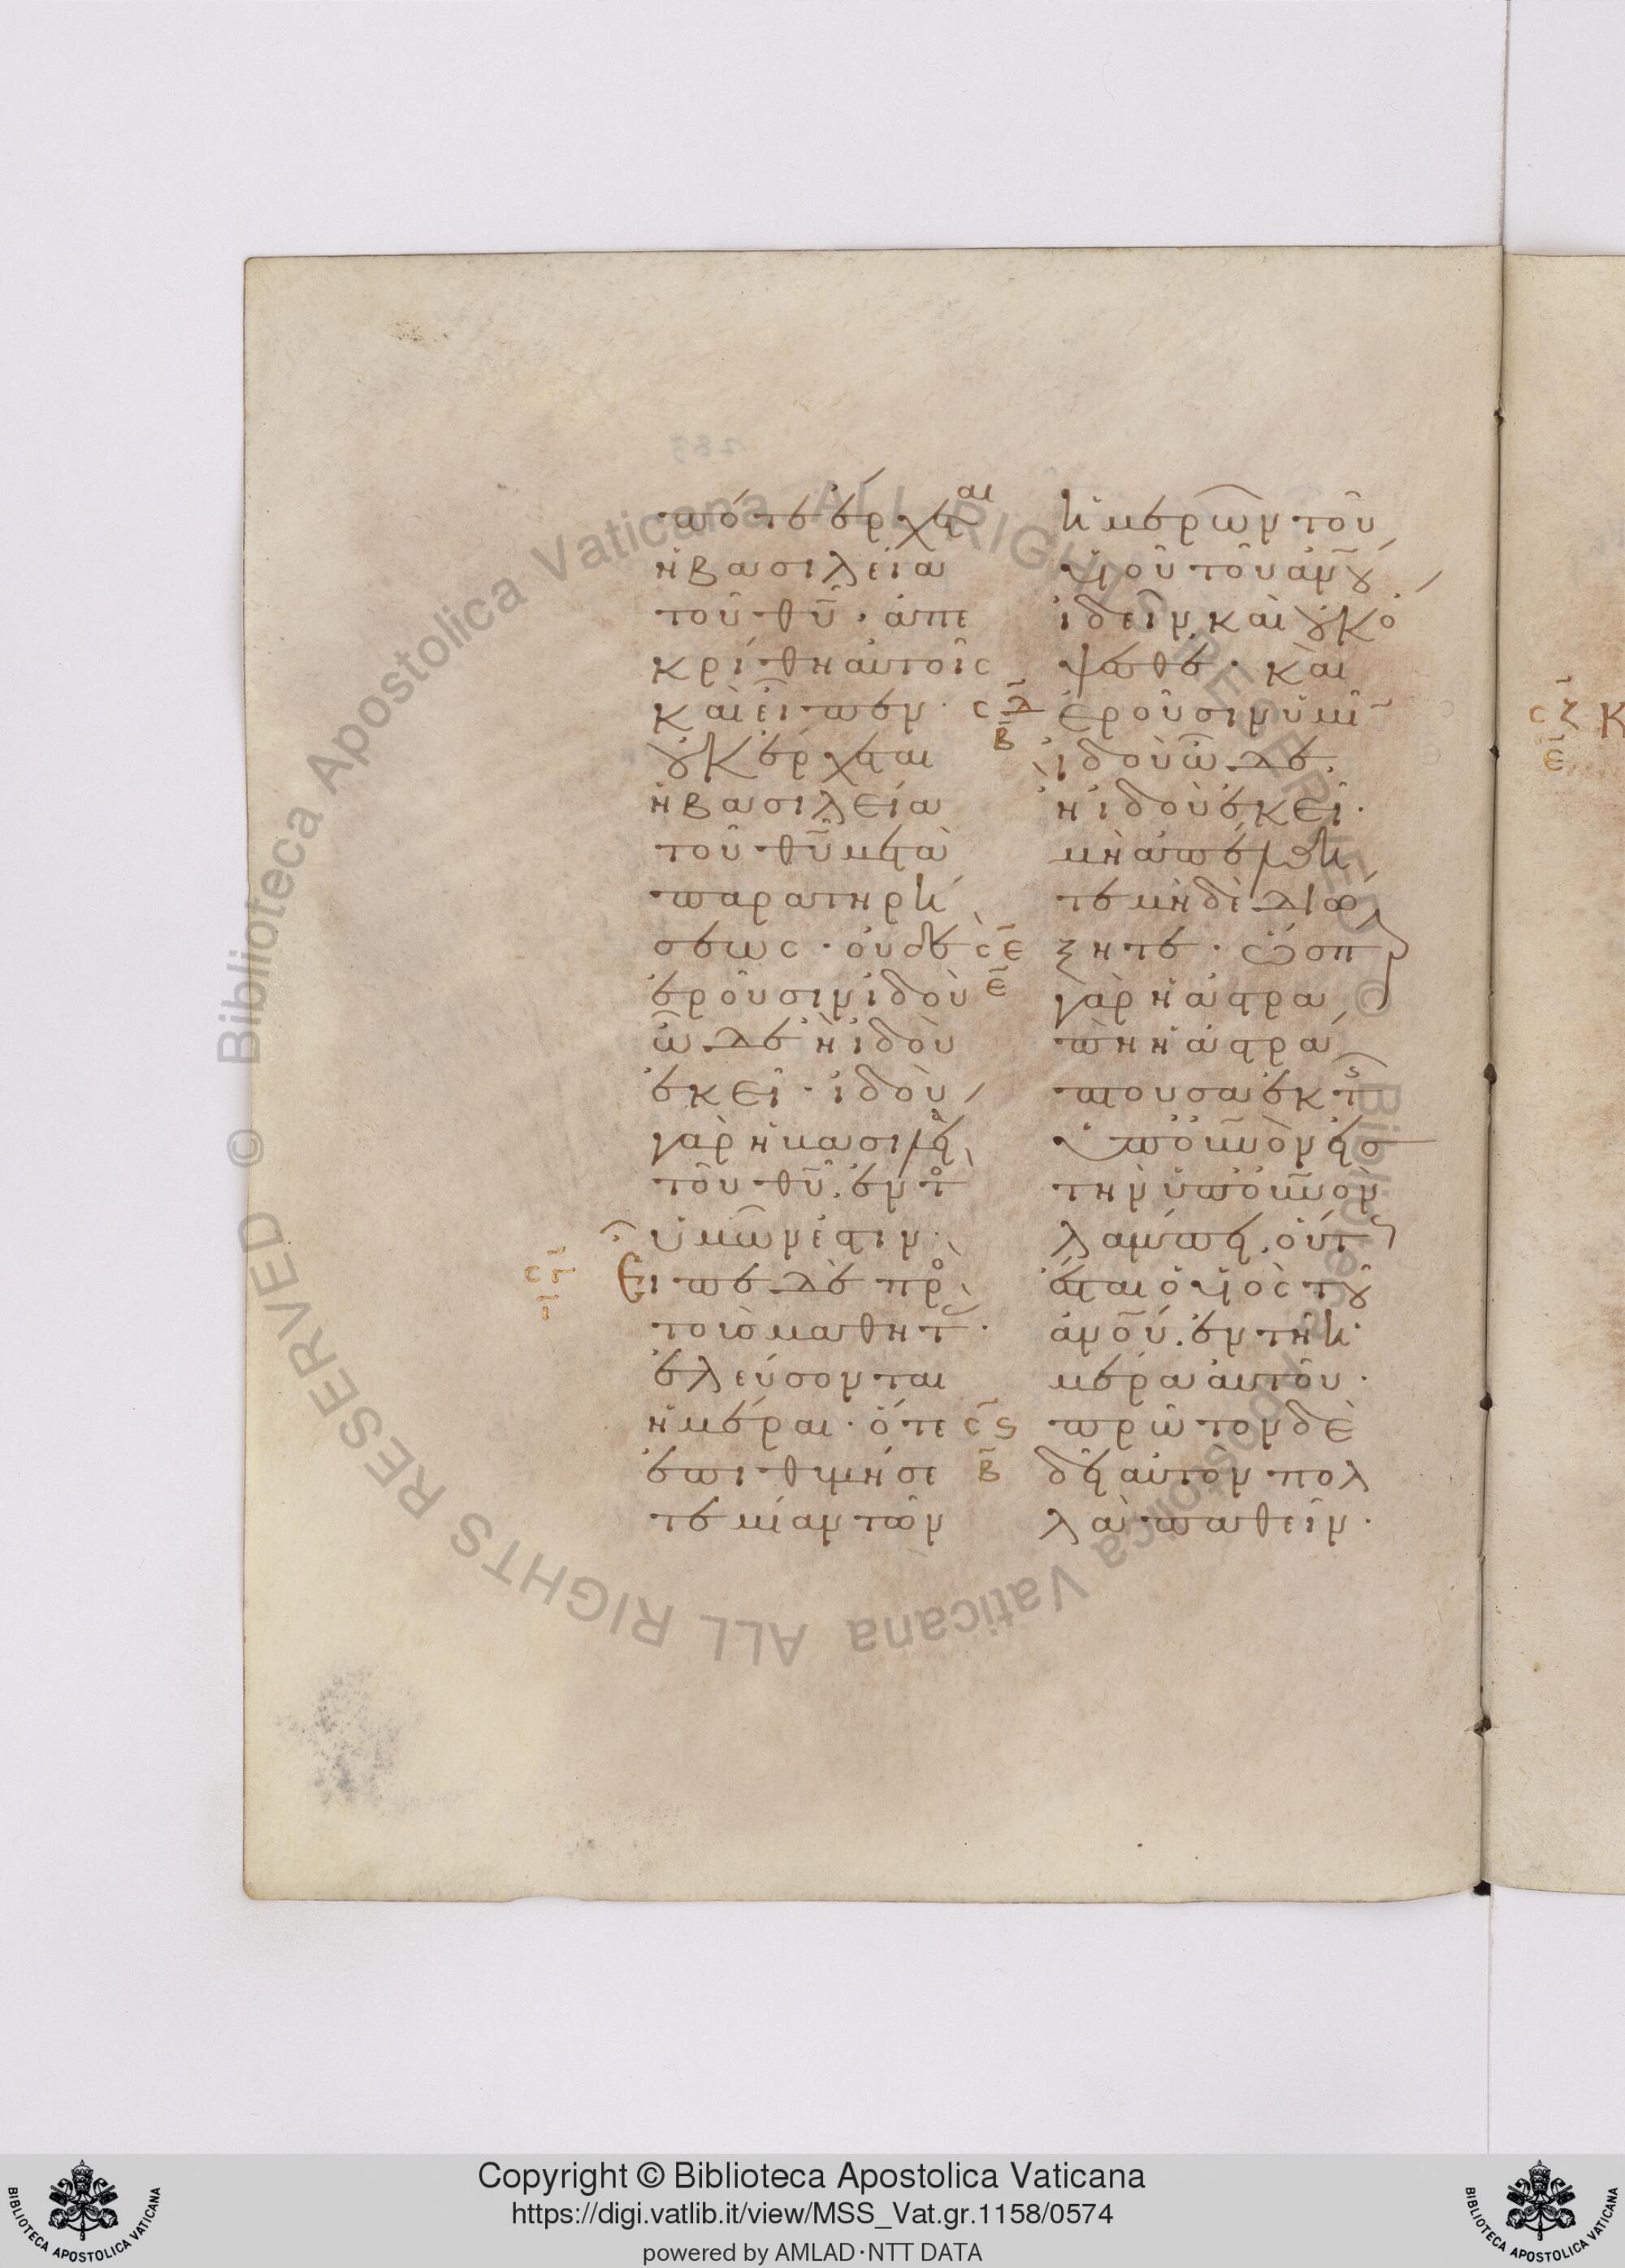 πότε ἔρχεται
ἡ βασιλεία
τοῦ θ̅υ̅· ἀπε
κρίθη αὐτοῖς
καὶ εἶπεν·
οὐκ ἔρχεται
ἡ βασιλεία
τοῦ θ̅υ̅ μετὰ
παρατηρή
σεως· οὐδὲ
ἐροῦσιν ἰδοὺ
ὧδε ἢ ἰδοὺ
ἐκεῖ· ἰδοὺ
γὰρ ἡ βασιλεία
τοῦ θ̅υ̅ ἐντὸς
ὑμῶν ἐστιν·
Εἶπε δὲ πρὸς
τοὺς μαθητάς·
ἐλεύσονται
ἡμέραι· ὅτε
ἐπιθυμήσε
τε μίαν τῶν
ἡμερῶν τοῦ
υἱοῦ τοῦ ἀ̅ν̅ου
ἰδεῖν καὶ οὐκ ὄ
ψεσθε· καὶ
ἐροῦσιν ὑμῖν
ἰδοὺ ὧδε
ἢ ἰδοὺ ἐκεῖ·
μὴ ἀπέλθη
τε μηδὲ διώ
ξητε· ὥσπερ
γὰρ ἡ ἀστρα
πὴ ἡ ἀστρά
πτουσα ἐκ τῆς
ὑπὸ ο̅υ̅νὸν εἰς
τὴν ὑπὸ ο̅υ̅νὸν
λάμπει· οὕτως
ἔσται ὁ υἱὸς τοῦ
ἀ̅ν̅ου· ἐν τῇ ἡ
μέρᾳ αὐτοῦ·
πρῶτον δὲ
δεῖ αὐτὸν πολ
λὰ παθεῖν·
Copyright © Biblioteca Apostolica Vaticana
https://digi.vatlib.it/view/MSS_Vat.gr.1158/0574
powered by AMLAD·NTT DATA